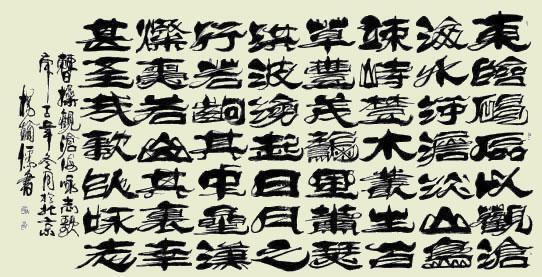 東臨碣石以觀滄
海水何澹淡山島
竦峙樹木叢生百
草豐茂秋風蕭瑟
洪波湧起日月之
行若出其中星漢
燦爛若出其裏幸
甚至哉歌以詠志
曹操觀滄海詠志歌
年冬月於北京
楊儒書